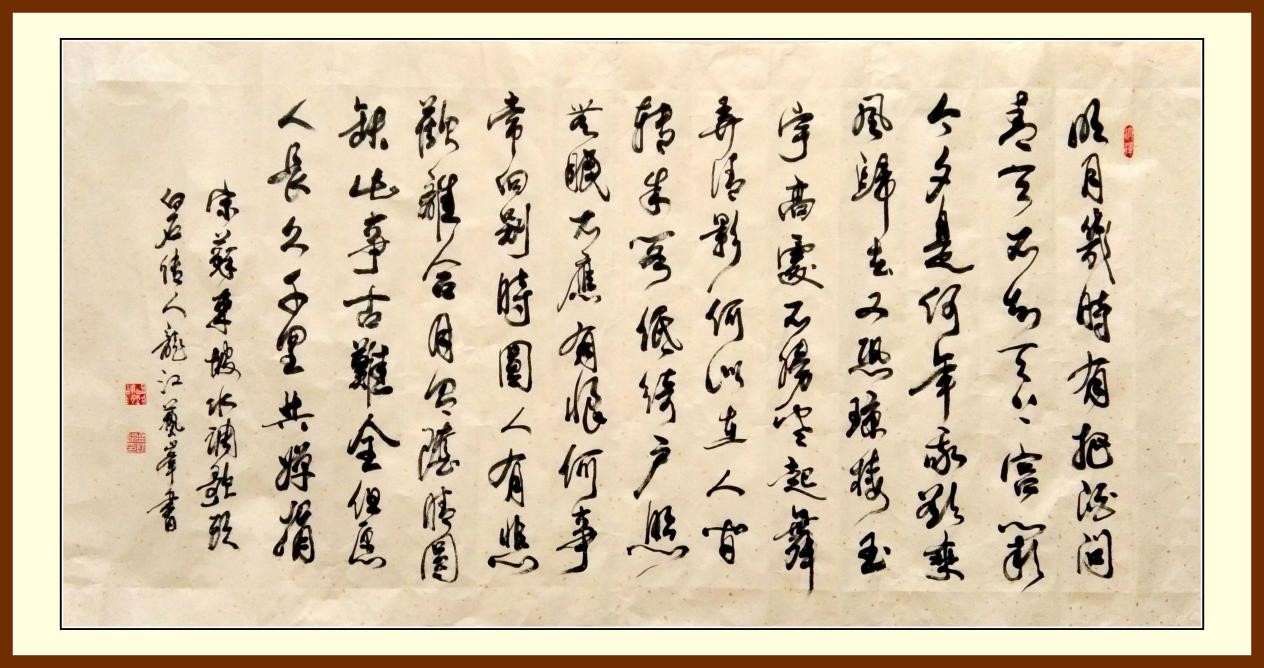 明月幾時有把酒問
青天不知天上宮闕
今夕是何年我欲乘
風歸去又恐瓊樓玉
宇高處不勝寒起舞
弄清影何似在人间
轉朱閣低綺戶照
無眠不應有恨何事
常向别時圓人有悲
歡離合月有陰晴圓
缺此事古難全但愿
人長久千里共嬋娟
宋蘇東坡水調歌頭
白石傳人龍江藝峯書